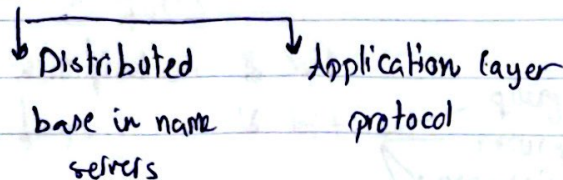 Distributed
base in name
servers
Application layer
protocol